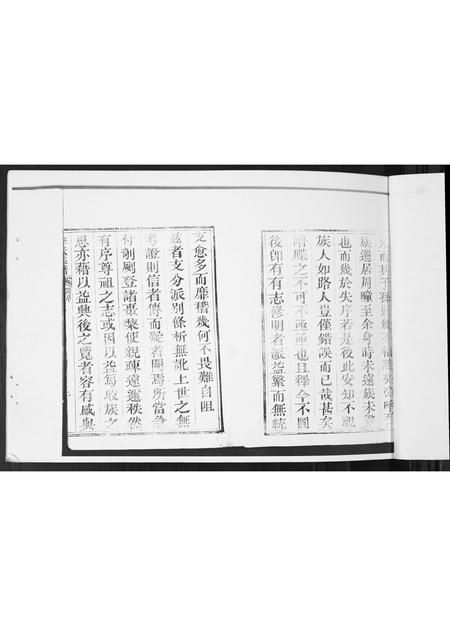 族遷居周疃至余身時未遠族未
也而幾於失序若是後此安知不視
族人如路人豈僅錯誤而已哉甚矣
譜牒之不可不亟亟也且釋今不圖
後卽有有志修明者派益繁而無統
支愈多而靡稽幾何不畏難自阻
茲者支分派別條析無訛上世之無
考證則信者傳而疑者闕焉所當急
付剞劂登諸棗梨使親疎遠邇秩然
有序尊祖之志或因以益篤收族之
思亦藉以益興後之覽者容有感與